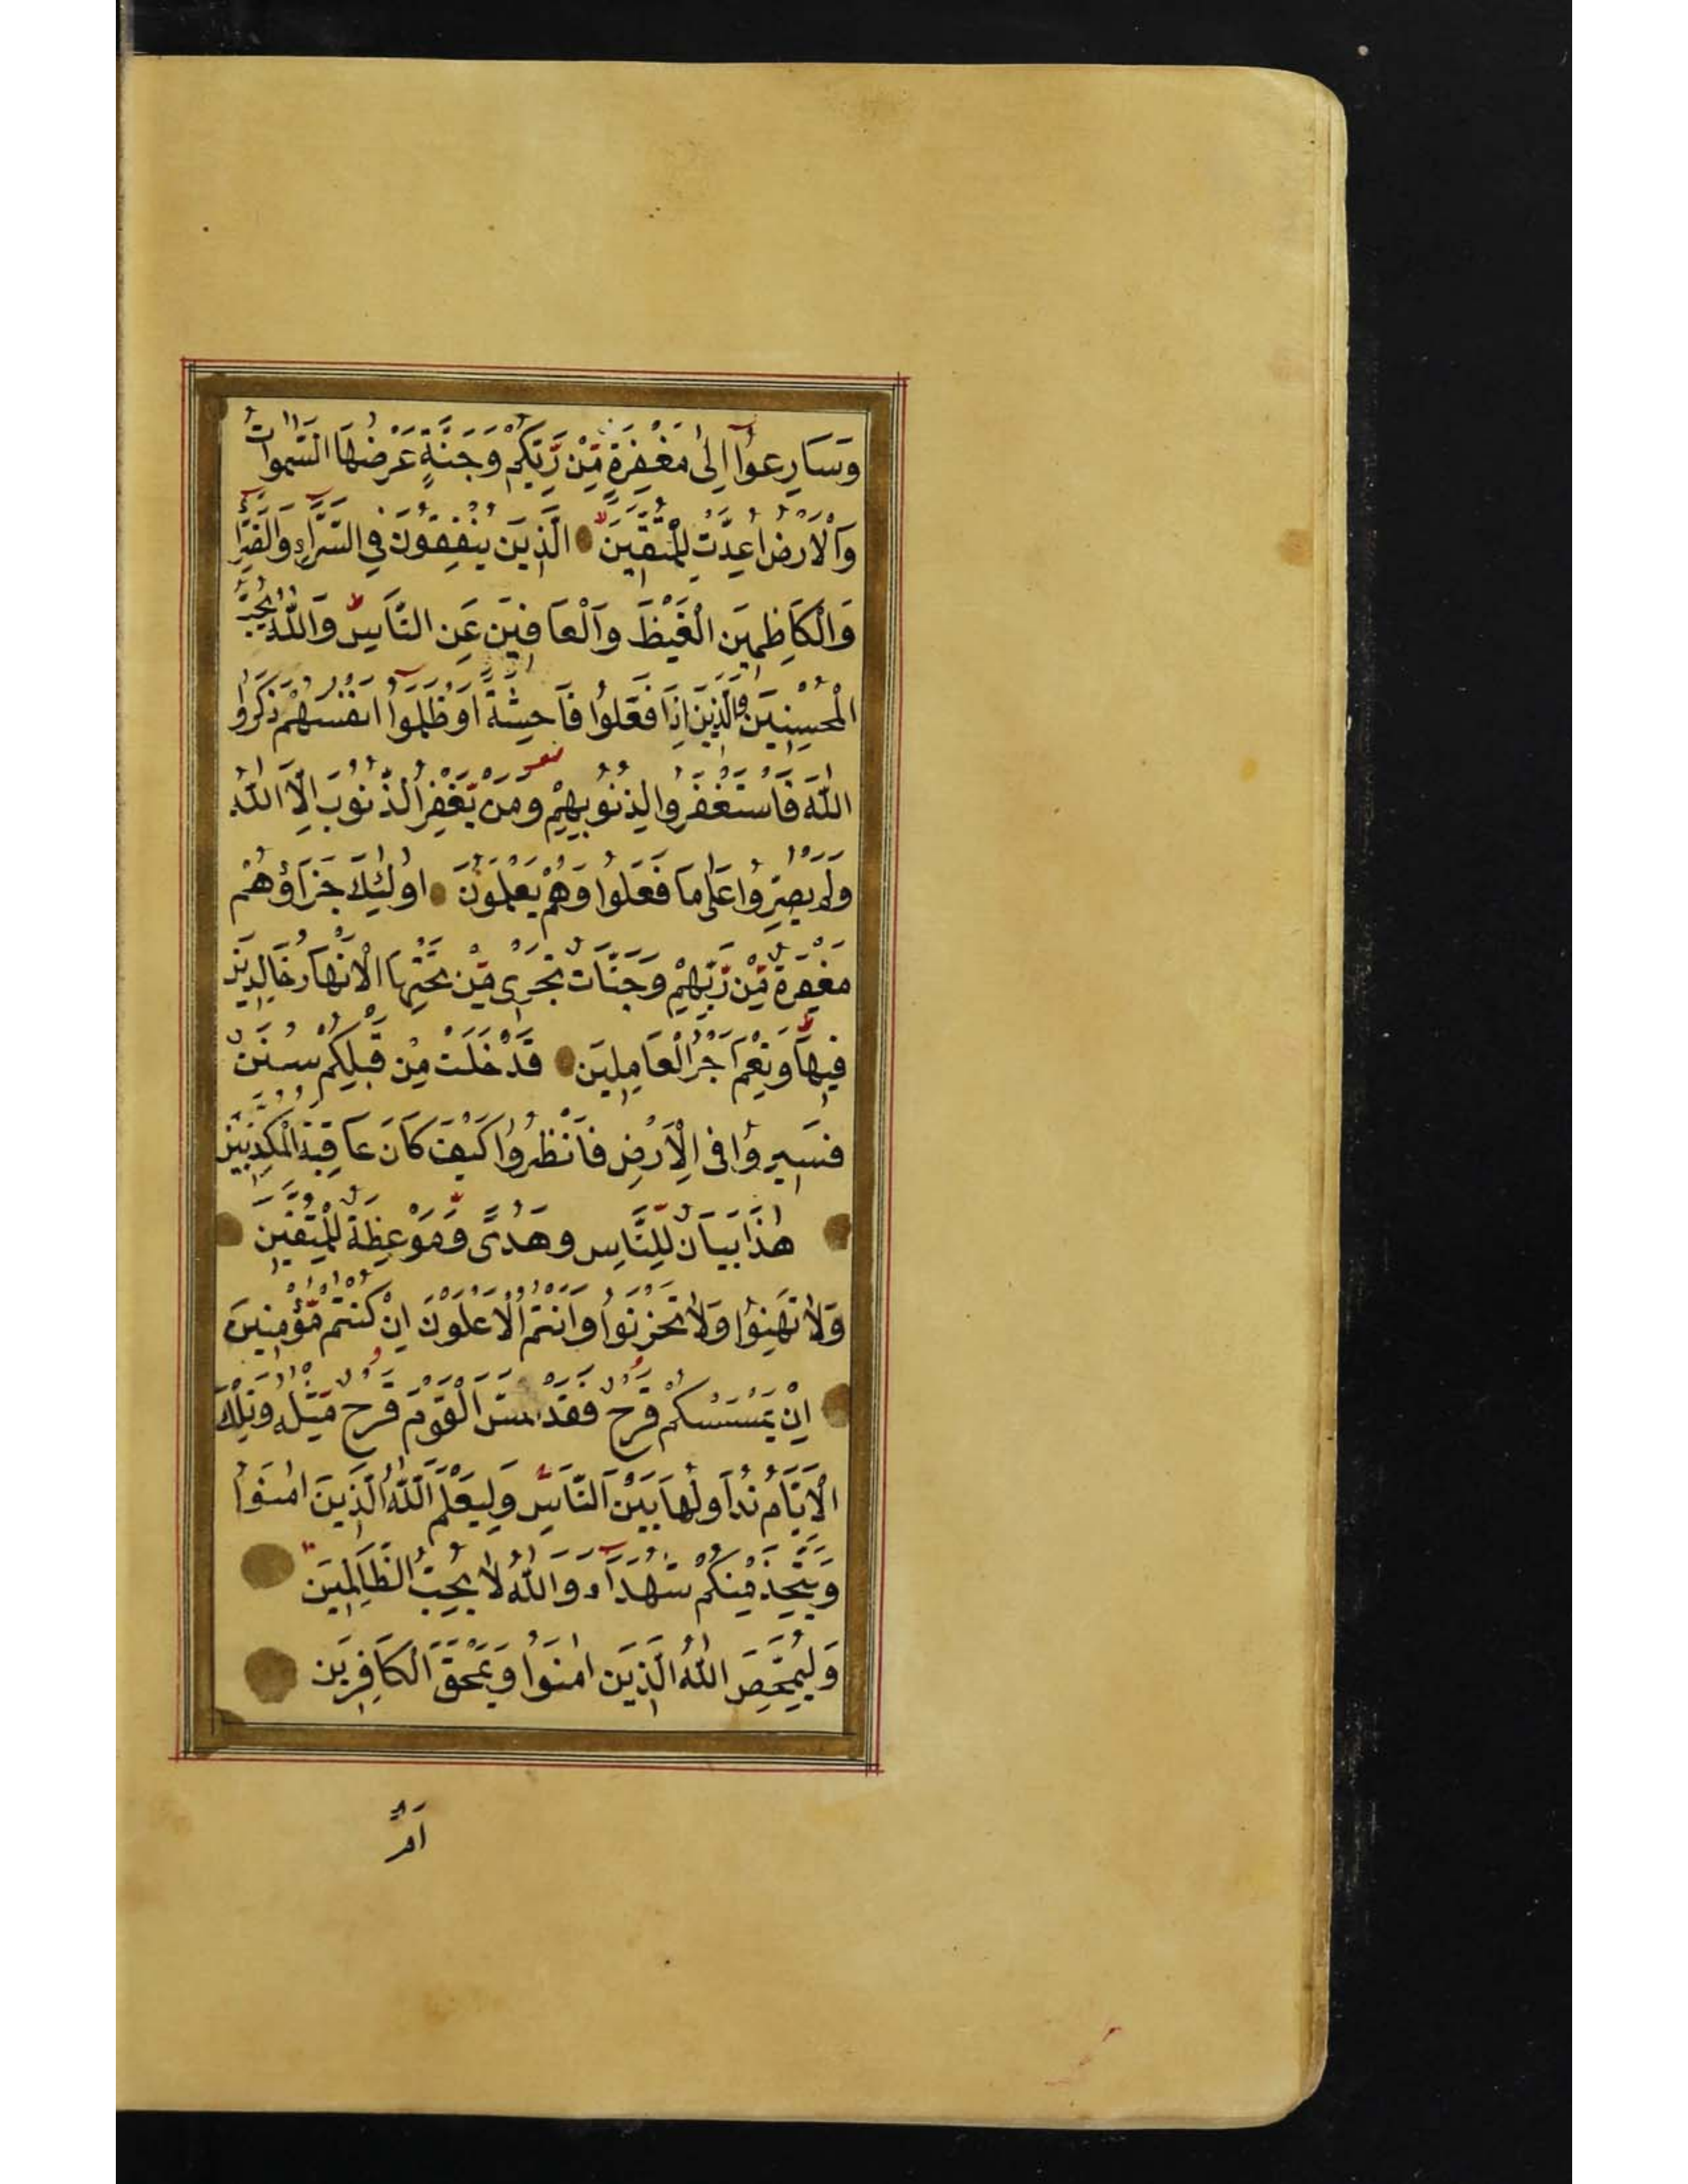 وَسَارِعُوا إِلَى مَغْفِرَةٍ مِّن رَّبِّكُمْ وَجَنَّةٍ عَرْضُهَا السَّمٰوَاتُ
وَالْاَرْضُ اُعِدَّتْ لِلْمُتَّقِينَ الَّذِينَ يُنْفِقُونَ فِي السَّرَّاءِ وَالضَّرَّا
وَالْكَاظِمِينَ الْغَيْظَ وَالْعَافِينَ عَنِ النَّاسِ وَاللّٰهُ يُحِبُّ
الْمُحْسِنِينَ وَالَّذِينَ اِذَا فَعَلُوا فَاحِشَةً اَوْ ظَلَمُوا اَنْفُسَهُمْ ذَكَرُوا
اللّٰهَ فَاسْتَغْفَرُوا لِذُنُوبِهِمْ وَمَنْ يَغْفِرُ الذُّنُوبَ اِلَّا اللّٰهُ
وَلَمْ يُصِرُّوا عَلٰى مَا فَعَلُوا وَهُمْ يَعْلَمُونَ اُولٰئِكَ جَزَاؤُهُمْ
مَغْفِرَةٌ مِّنْ رَّبِّهِمْ وَجَنَّاتٌ تَجْرِي مِنْ تَحْتِهَا الْاَنْهَارُ خَالِدِينَ
فِيهَا وَنِعْمَ اَجْرُ الْعَامِلِينَ قَدْ خَلَتْ مِنْ قَبْلِكُمْ سُنَنٌ
فَسِيرُوا فِي الْاَرْضِ فَانْظُرُوا كَيْفَ كَانَ عَاقِبَةُ الْمُكَذِّبِينَ
هٰذَا بَيَانٌ لِّلنَّاسِ وَهُدًى وَّمَوْعِظَةٌ لِّلْمُتَّقِينَ
وَلَا تَهِنُوا وَلَا تَحْزَنُوا وَاَنْتُمُ الْاَعْلَوْنَ اِنْ كُنْتُمْ مُّؤْمِنِينَ
اِنْ يَمْسَسْكُمْ قَرْحٌ فَقَدْ مَسَّ الْقَوْمَ قَرْحٌ مِّثْلُهُ وَتِلْكَ
الْاَيَّامُ نُدَاوِلُهَا بَيْنَ النَّاسِ وَلِيَعْلَمَ اللّٰهُ الَّذِينَ اٰمَنُوا
وَيَتَّخِذَ مِنْكُمْ شُهَدَاءَ وَاللّٰهُ لَا يُحِبُّ الظَّالِمِينَ
وَلِيُمَحِّصَ اللّٰهُ الَّذِينَ اٰمَنُوا وَيَمْحَقَ الْكَافِرِينَ
اَمْ